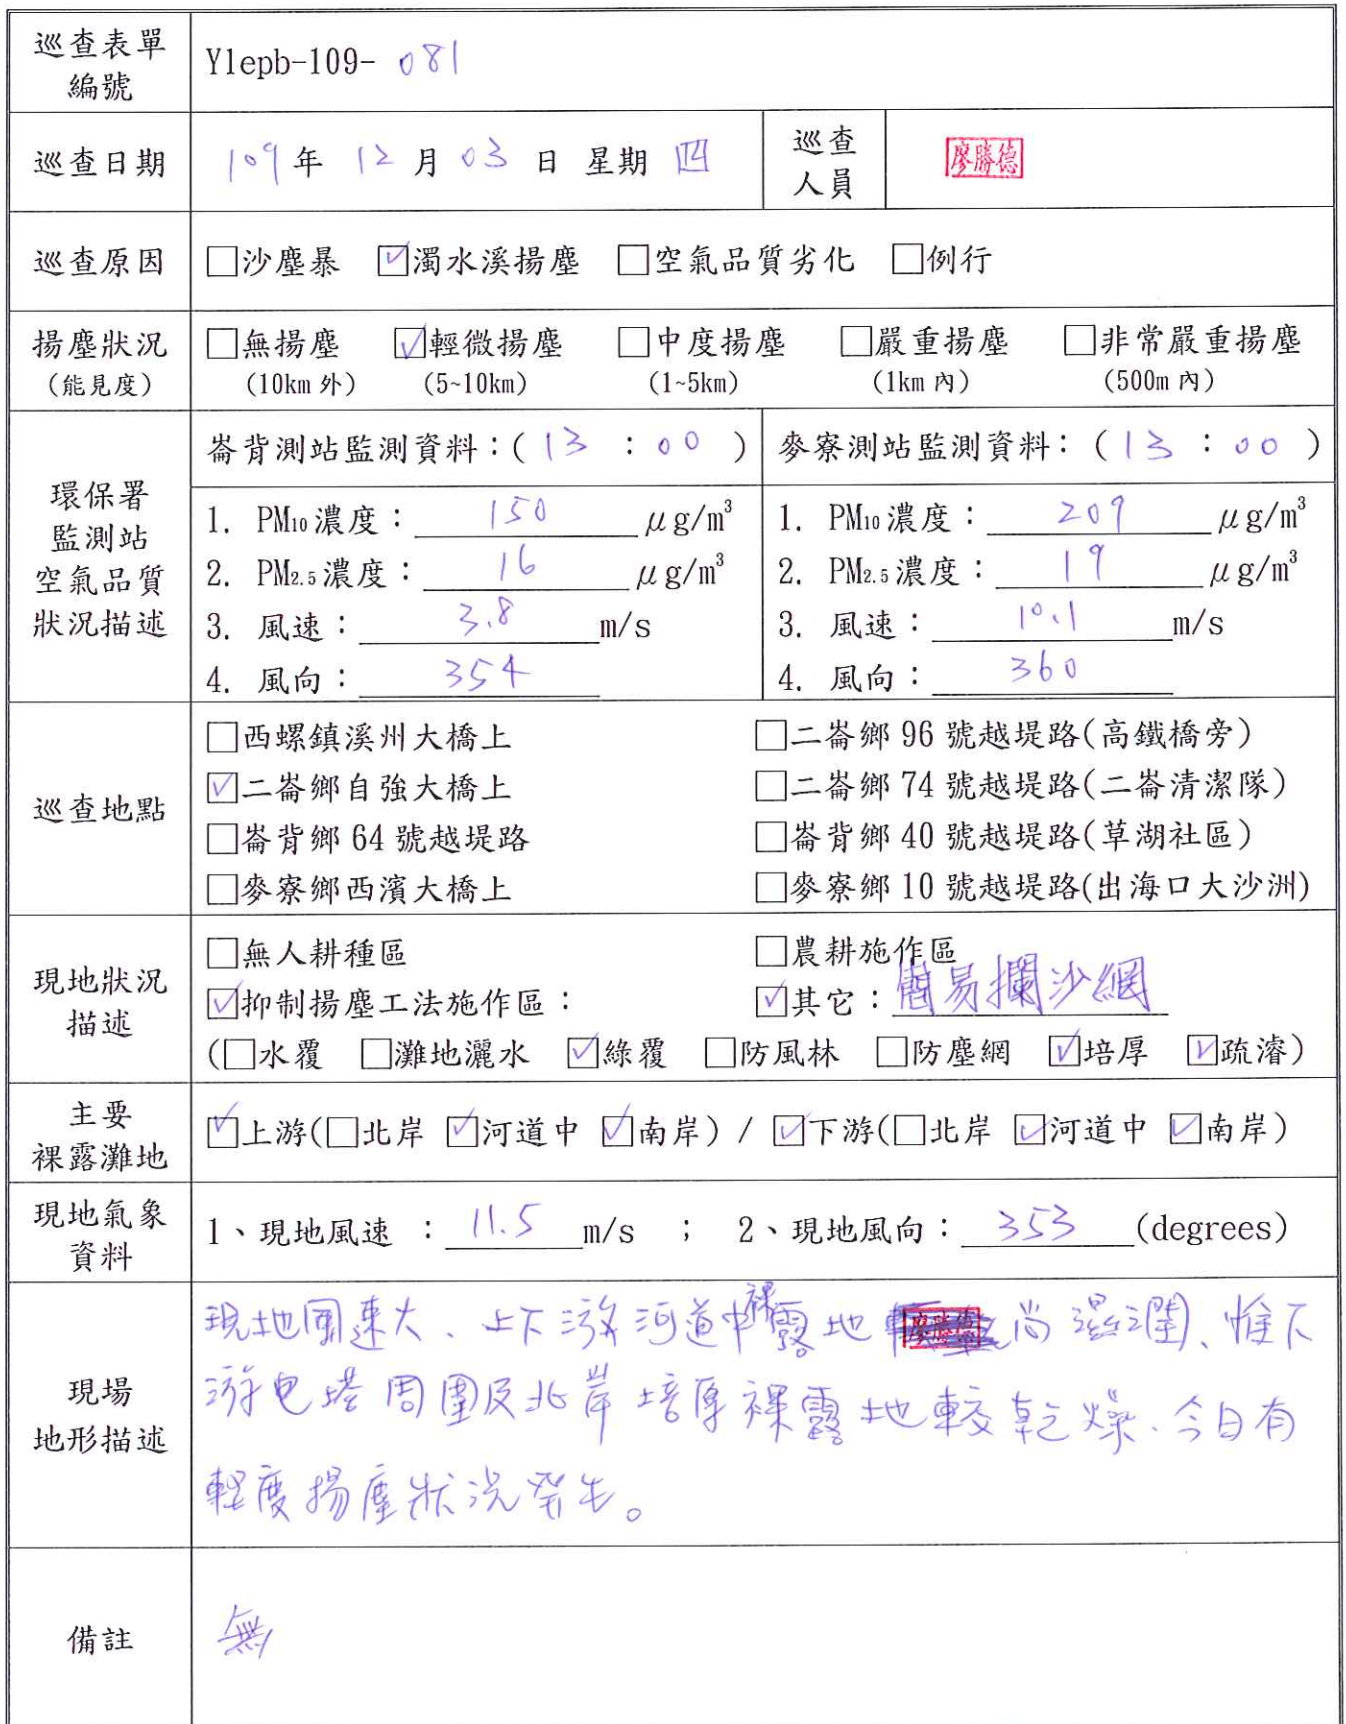 巡查表單
編號
Ylepb-109- 081
巡查日期
109 年 12 月 03 日 星期 四
巡查
人員
廖勝德
巡查原因
□沙塵暴 ☑濁水溪揚塵 □空氣品質劣化 □例行
揚塵狀況
(能見度)
□無揚塵 ☑輕微揚塵 □中度揚塵 □嚴重揚塵 □非常嚴重揚塵
(10km 外) (5~10km) (1~5km) (1km 內) (500m 內)
環保署
監測站
空氣品質
狀況描述
崙背測站監測資料：( 13 : 00 )
1. PM10 濃度： 150 μg/m³
2. PM2.5 濃度： 16 μg/m³
3. 風速： 3.8 m/s
4. 風向： 354
麥寮測站監測資料： ( 13 : 00 )
1. PM10 濃度： 209 μg/m³
2. PM2.5 濃度： 19 μg/m³
3. 風速： 10.1 m/s
4. 風向： 360
巡查地點
□西螺鎮溪州大橋上 □二崙鄉 96 號越堤路(高鐵橋旁)
☑二崙鄉自強大橋上 □二崙鄉 74 號越堤路(二崙清潔隊)
□崙背鄉 64 號越堤路 □崙背鄉 40 號越堤路(草湖社區)
□麥寮鄉西濱大橋上 □麥寮鄉 10 號越堤路(出海口大沙洲)
現地狀況
描述
□無人耕種區 □農耕施作區
☑抑制揚塵工法施作區： ☑其它：簡易攔沙網
(□水覆 □灘地灑水 ☑綠覆 □防風林 □防塵網 ☑培厚 ☑疏濬)
主要
裸露灘地
☑上游(□北岸 ☑河道中 ☑南岸) / ☑下游(□北岸 ☑河道中 ☑南岸)
現地氣象
資料
1、現地風速 ： 11.5 m/s ； 2、現地風向： 353 (degrees)
現場
地形描述
現地風速大、上下游河道中裸露地 廖勝德 尚濕潤、惟下
游电塔周圍及北岸培厚裸露地較乾燥、今日有
輕度揚塵狀況發生。
備註
無